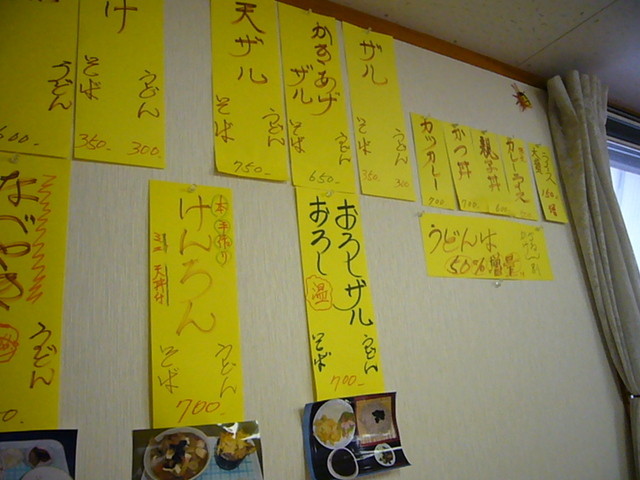 け
そば うどん
350- 300-
うどん
600-
天ザル
そば うどん
750-
かきあげ
ザル
そば うどん
650-
ザル
そば うどん
350- 300-
カツカレー
700-
かつ丼
700-
親子丼
600-
カレーライス
ライス
うどんは
50%増量
なべやき
うどん
けんちん
天丼付
そば うどん
700-
おろしザル
おろし 温
そば うどん
700-